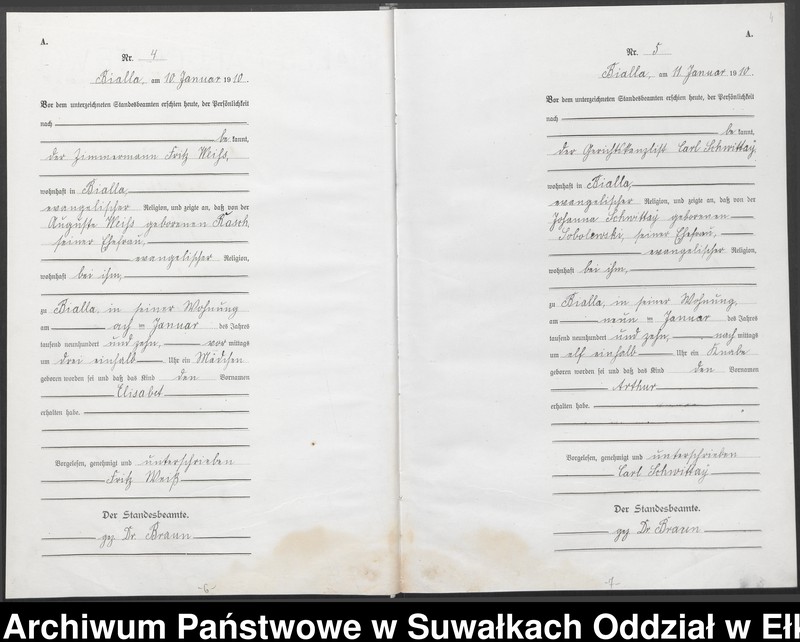 A.
Nr. 4
Bialla, am 10 Januar 1910.
Vor dem unterzeichneten Standesbeamten erschien heute, der Persönlichkeit
nach
be kannt,
der Zimmermann Fritz Weiß,
wohnhaft in Bialla,
evangelischer Religion, und zeigte an, daß von der
Auguste Weiß geborenen Kasch,
seiner Ehefrau,
evangelischer Religion,
wohnhaft bei ihm,
zu Bialla, in seiner Wohnung
am acht en Januar des Jahres
tausend neunhundert und zehn, vor mittags
um drei einhalb Uhr ein Mädchen
geboren worden sei und daß das Kind den Vornamen
Elisabet
erhalten habe.
Vorgelesen, genehmigt und unterschrieben
Fritz Weiß
Der Standesbeamte.
gez Dr. Braun
-6-
A.
Nr. 5
Bialla, am 11 Januar 1910.
Vor dem unterzeichneten Standesbeamten erschien heute, der Persönlichkeit
nach
be kannt,
der Gerichtskanzlist Carl Schwittay,
wohnhaft in Bialla,
evangelischer Religion, und zeigte an, daß von der
Johanna Schwittay geborenen
Sobolewski, seiner Ehefrau,
evangelischer Religion,
wohnhaft bei ihm,
zu Bialla, in seiner Wohnung,
am neun en Januar des Jahres
tausend neunhundert und zehn, nach mittags
um elf einhalb Uhr ein Knabe
geboren worden sei und daß das Kind den Vornamen
Arthur
erhalten habe.
Vorgelesen, genehmigt und unterschrieben
Carl Schwittay
Der Standesbeamte.
gez Dr Braun
-7-
Archiwum Państwowe w Suwałkach Oddział w Eł